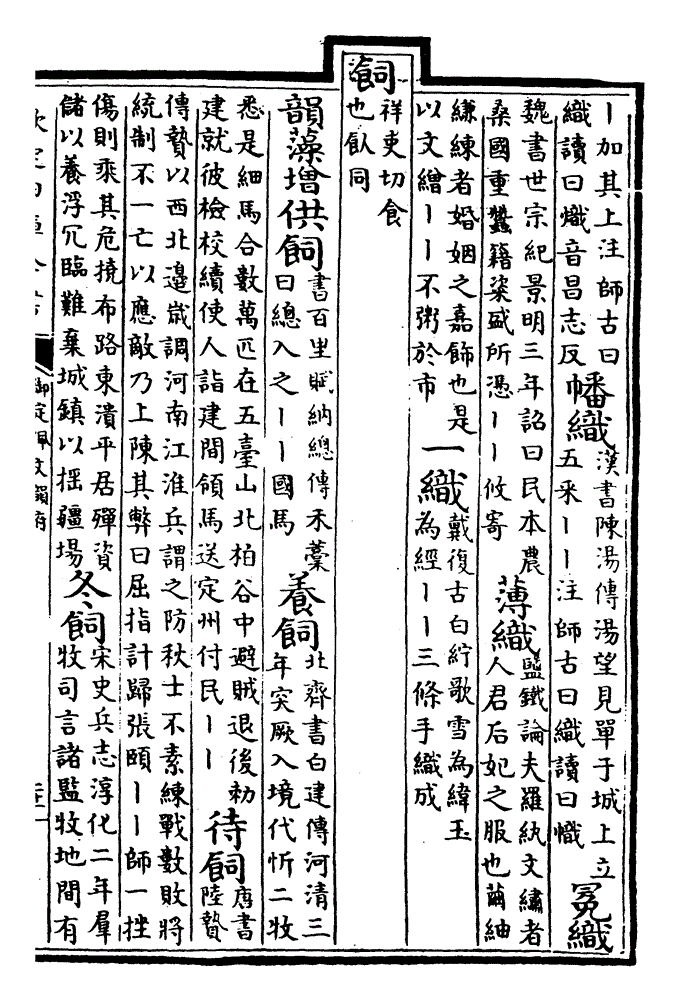 丨加其上注師古曰
織讀曰熾音昌志反
幡織
漢書陳湯傳湯望見單于城上立
五采丨丨注師古曰織讀曰幟
冕織
魏書世宗紀景明三年詔曰民本農
桑國重蠶籍粢盛所憑丨丨攸寄
薄織
鹽鐵論夫羅紈文繡者
人君后妃之服也繭紬
縑練者婚姻之嘉飾也是
以文繒丨丨不粥於市
一織
戴復古白紵歌雪為緯玉
為經丨丨三條手織成
飼
祥吏切食
也飤同
韻藻增
供飼
書百里賦納總傳禾藁
曰總入之丨丨國馬
養飼
北齊書白建傳河清三
年突厥入境代忻二牧
悉是細馬合數萬匹在五臺山北柏谷中避賊退後勑
建就彼檢校續使人詣建間領馬送定州付民丨丨
待飼
唐書
陸贄
傳贄以西北邊歲調河南江淮兵謂之防秋士不素練戰數敗將
統制不一亡以應敵乃上陳其弊曰屈指計歸張頤丨丨師一挫
傷則乘其危撓布路東潰平居殫資
儲以養浮冗臨難棄城鎮以揺疆場
冬飼
宋史兵志淳化二年羣
牧司言諸監牧地間有
欽定四庫全書
御定佩文韻府